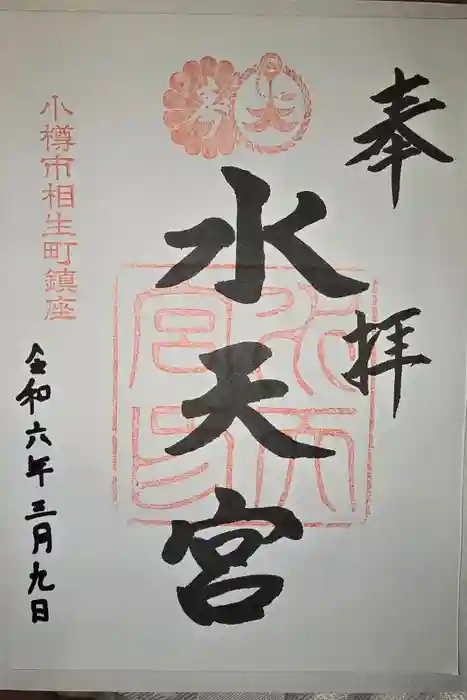 奉拝
水天宮
小樽市相生町鎮座
令和六年三月九日
水天宮印